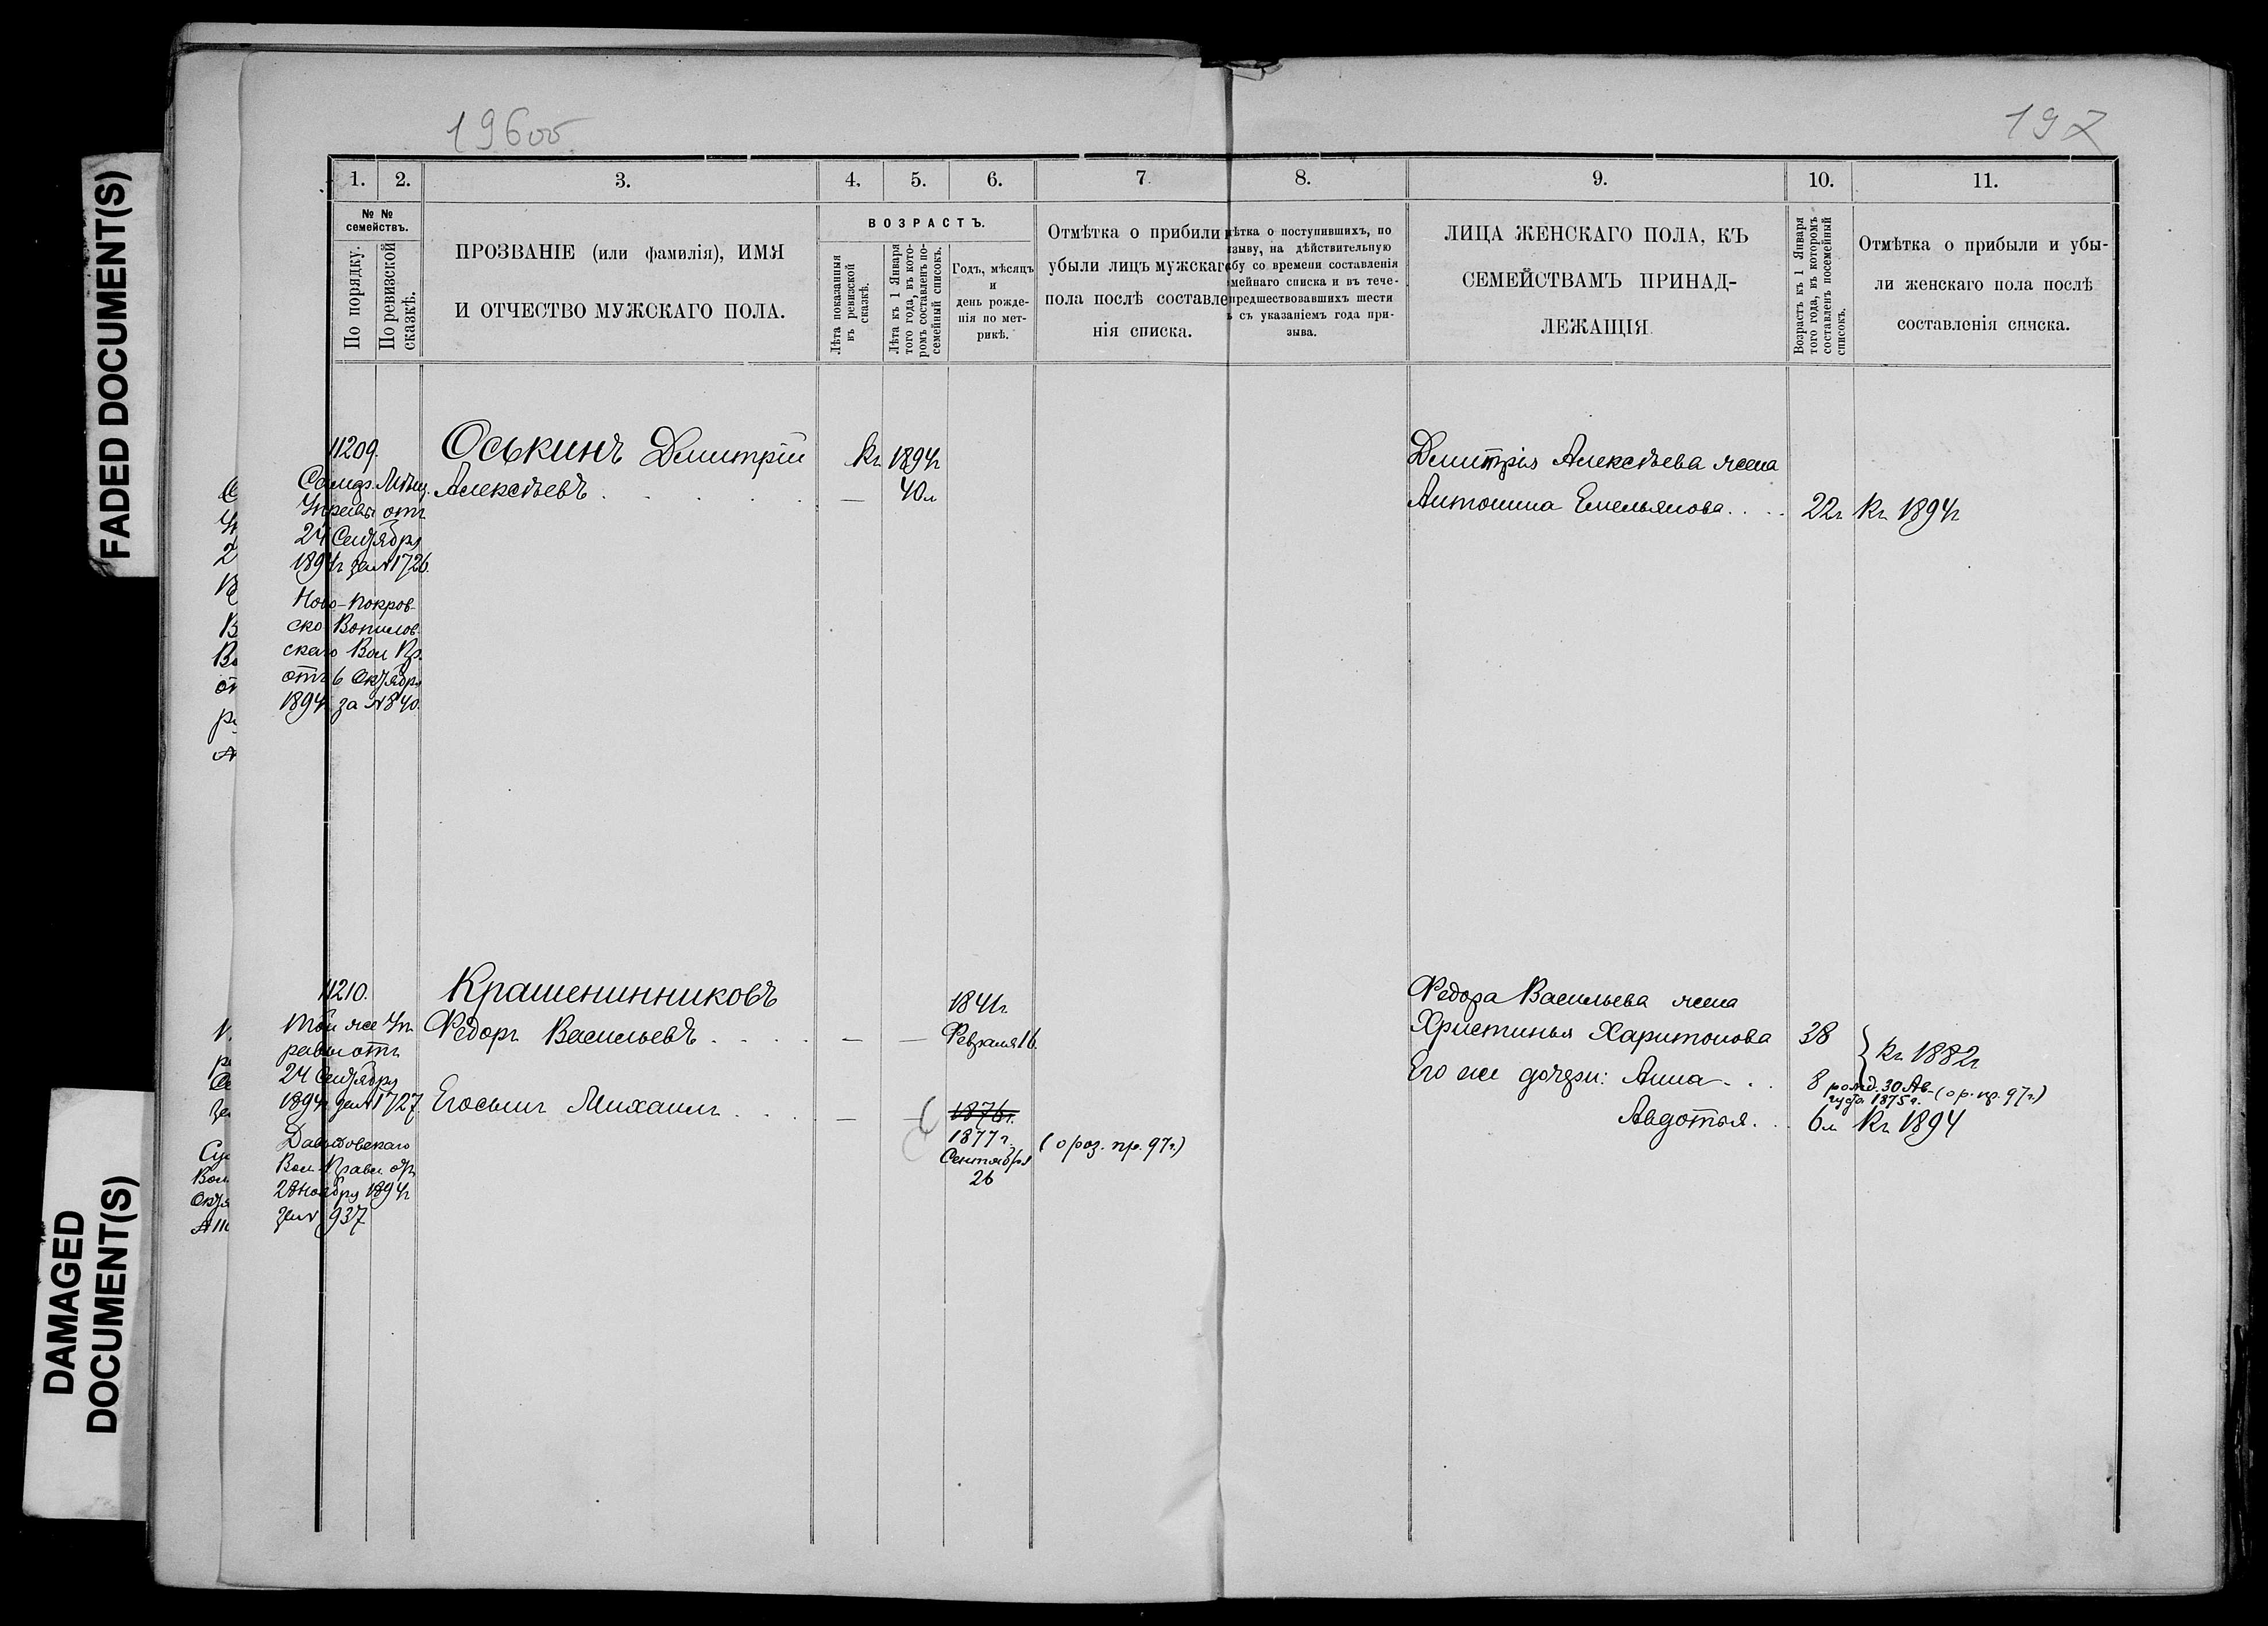 FADED DOCUMENT(S)
DAMAGED
DOCUMENT(S)
196об.
197
1. 2. 3. 4. 5. 6. 7. 8. 9. 10. 11.
№ №
семействъ.
По порядку.
По ревизской
сказкѣ.
ПРОЗВАНІЕ (или фамилія), ИМЯ
И ОТЧЕСТВО МУЖСКАГО ПОЛА.
ВОЗРАСТЪ.
Лѣта показанныя
въ ревизской
сказкѣ.
Лѣта къ 1 Января
того года, въ кото-
ромъ составленъ по-
семейный списокъ.
Годъ, мѣсяцъ
и
день рожде-
нія по мет-
рикѣ.
Отмѣтка о прибыли
убыли лицъ мужскаго
пола послѣ составле
нія списка.
ѣтка о поступившихъ, по
ызыву, на дѣйствительную
бу со времени составленія
мейнаго списка и въ тече-
предшествовавшихъ шести
ъ съ указаніемъ года при-
зыва.
ЛИЦА ЖЕНСКАГО ПОЛА, КЪ
СЕМЕЙСТВАМЪ ПРИНАД-
ЛЕЖАЩІЯ
Возрастъ къ 1 Января
того года, въ которомъ
составленъ посемейный
списокъ.
Отмѣтка о прибыли и убы-
ли женскаго пола послѣ
составленія списка.
11209.
Самар. Мѣщ.
Управы отъ
24 Сентября
1894г за №1726.
Ново-Покров-
ско Вопилов-
скаго Вол Пр.
отъ 6 Октября
1894 за №840.
Оськинъ Димитрій
Алексѣевъ
— Къ 1894г
40л
Димитрія Алексѣева жена
Антонина Емельянова 22г Къ 1894г
11210.
Той же Уп
равы отъ
24 Сентября
1894г за №1727
Давыдовскаго
Вол Правл отъ
28 Ноября 1894г
за № 937
Крашенинниковъ
Федоръ Васильевъ — —
1841г
Февраля 16.
Егосынъ Михаилъ — —
1876г.
1877г.
Сентября
26
(о роз. пр. 97г.)
Федора Васильева жена
Христинья Харитонова 38
Къ 1882г
Его же дочери: Анна 8
рожд. 30 Ав- (о р. пр. 97г.)
густа 1875г.
Авдотья 6л Къ 1894